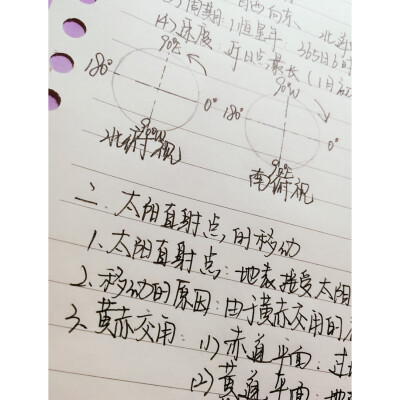 (3) 周期：恒星年：365日6时
(4) 速度：近日点最长（1月初
90°E
90°W
180°
0°
180°
0°
90°W
90°E
北俯视
南俯视
二、太阳直射点的移动
1、太阳直射点：地表接受太阳
2、移动的原因：由于黄赤交角的
3、黄赤交角：(1) 赤道平面：过地
(2) 黄道平面：地